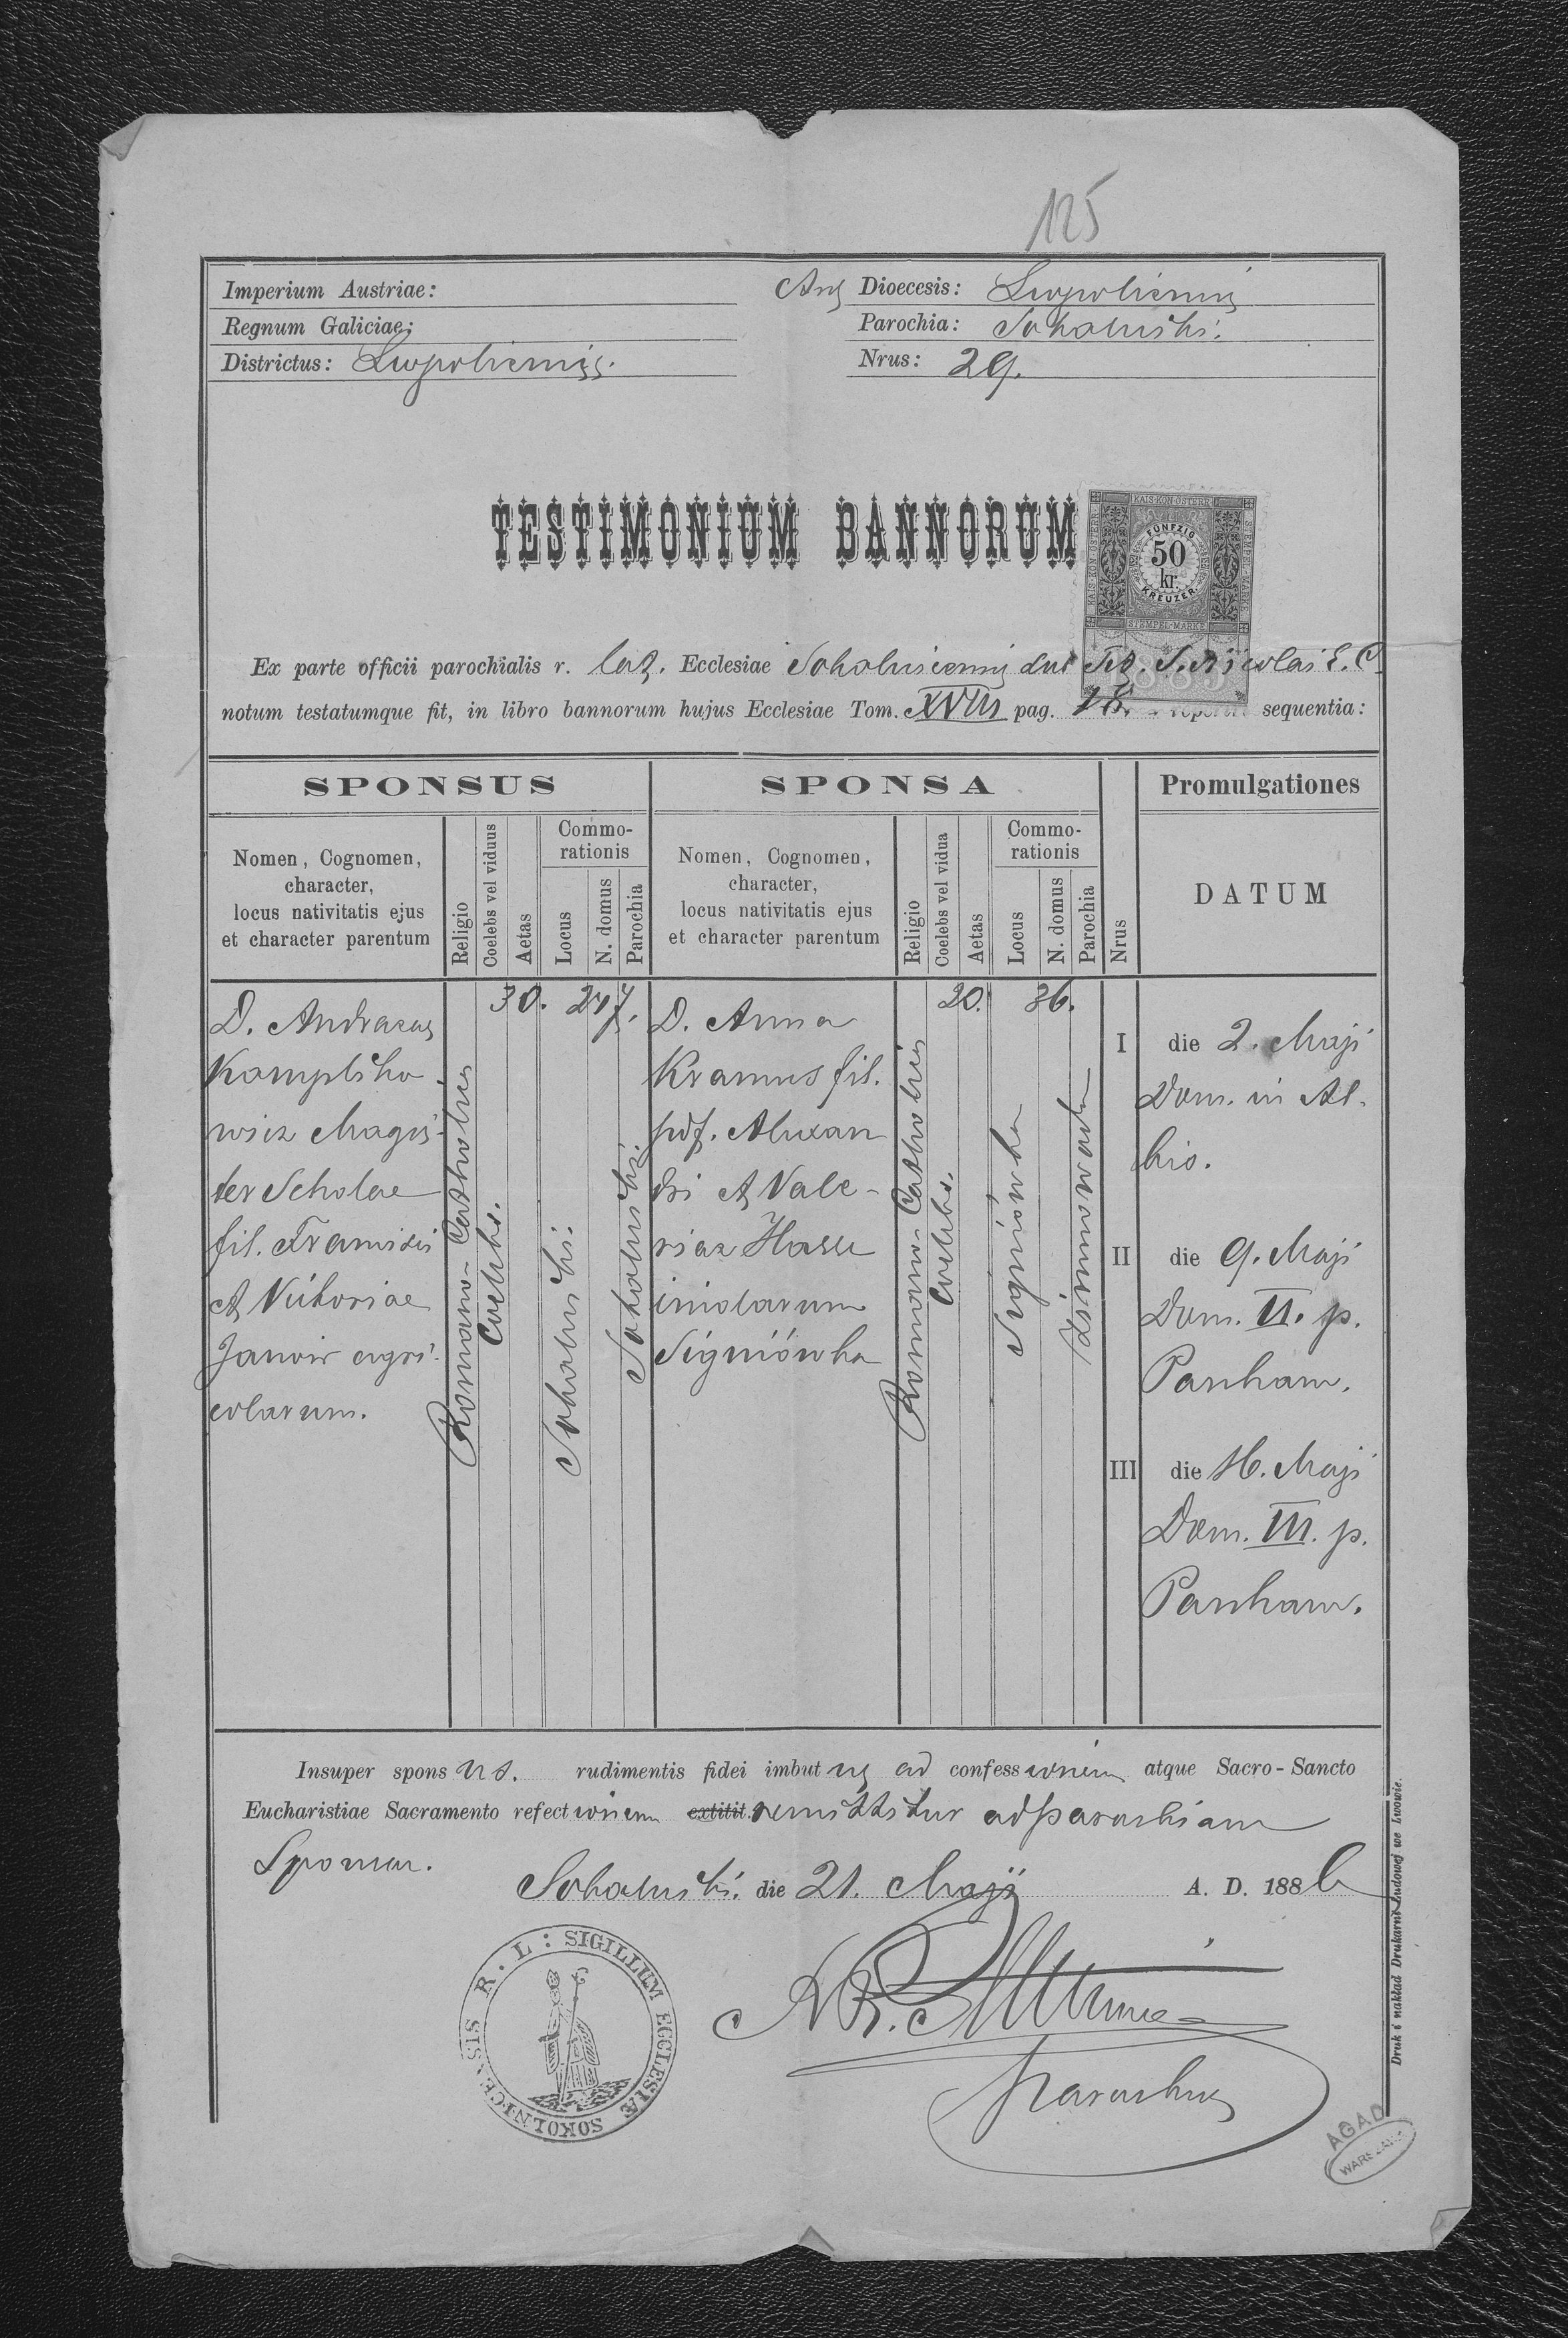 125
Imperium Austriae:
Regnum Galiciae:
Districtus: Leopoliensis.
Dioecesis: Leopoliensis
Parochia: Sokolniki.
Nrus: 29.
TESTIMONIUM BANNORUM
KAIS·KÖN·ÖSTERR·
FÜNFZIG
50
kr.
KREUZER
STEMPEL-MARKE
1885
Ex parte officii parochialis r. lat. Ecclesiae Sokolnicensis sub Tit. S. Nicolai E. C.
notum testatumque fit, in libro bannorum hujus Ecclesiae Tom. XVIII pag. sequentia:
SPONSUS
SPONSA
Promulgationes
Nomen, Cognomen,
character,
locus nativitatis ejus
et character parentum
Religio
Coelebs vel viduus
Aetas
Commo-
rationis
Locus
N. domus
Parochia
Nomen, Cognomen,
character,
locus nativitatis ejus
et character parentum
Religio
Coelebs vel vidua
Aetas
Commo-
rationis
Locus
N. domus
Parochia
Nrus
DATUM
D. Andraeas
Komplik­o
wicz Magis-
ter Scholae
fil. Francisci
et Victoriae
Janow agri-
colarum.
Romano-Catholica
Coelebs.
30.
Sokolniki.
247.
Sokolniki.
D. Anna
Kramus fil.
pdf. Alexan
dri et Vale-
riae Hasse
incolarum
Signiówka
Romano-Catholica
Coelebs.
20.
Signiówka
36.
Zimnawoda
I die 2. Maji
Dom. in Al-
bis.
II die 9. Maji
Dom. II. p.
Pascham.
III die 16. Maji
Dom. III. p.
Pascham.
Insuper sponsus. rudimentis fidei imbutus ad confessionem atque Sacro-Sancto
Eucharistiae Sacramento refectionem extitit remittitur ad parochiam
Sponsae.
Sokolniki. die 21. Maji A. D. 1886
R. L: SIGILLUM ECCLESIÆ SOKOLNICENSIS
parochus
Druk i nakład Drukarni Ludowej we Lwowie.
AGAD
WARSZAWA